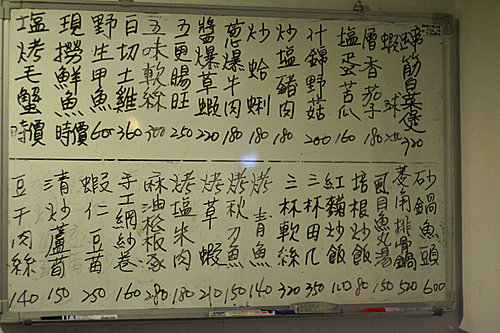 蹄筋白菜煲 320
蝦球
香茄子
塩蛋苦瓜 160
什錦野菇 200
炒塩豬肉 180
炒蛤蜊 180
蔥爆牛肉 180
醬爆草蝦 220
五更腸旺 250
五味軟絲 300
白切土雞 360
野生甲魚 600
現撈鮮魚 時價
塩烤毛蟹 時價
砂鍋魚頭 600
排骨鍋 520
虱目魚丸湯 150
培根炒飯 80
紅麴炒飯 100
三杯田几 350
三杯軟絲 320
烤青魚 140
烤秋刀魚 150
烤草蝦 210
烤塩米肉 180
麻油松板豕 280
手工網紗卷 160
蝦仁豆苗 250
清炒蘆筍 150
豆干肉絲 140